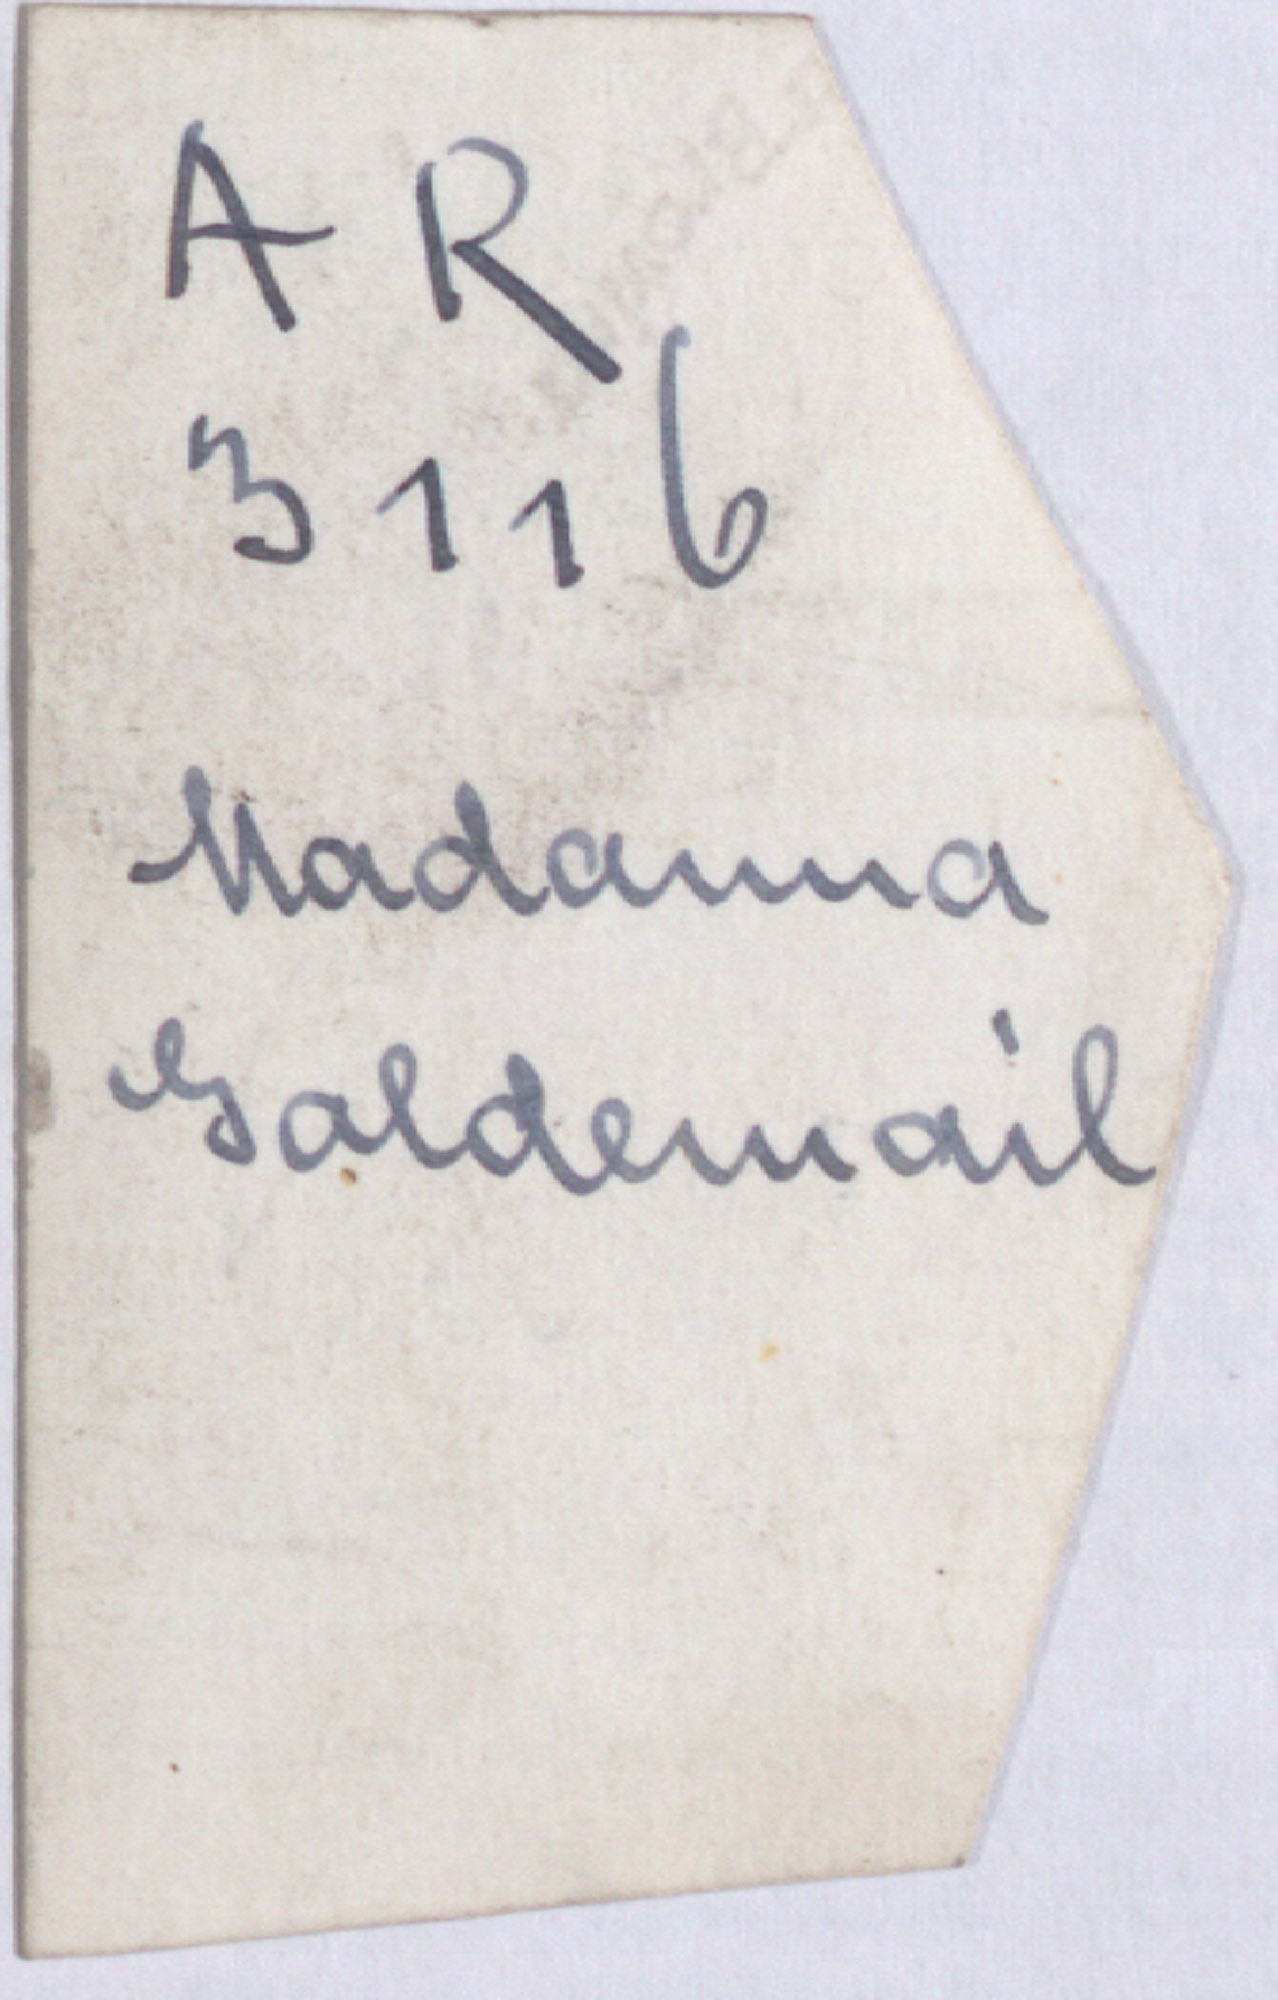 A R
3116
Madanna
Goldemail